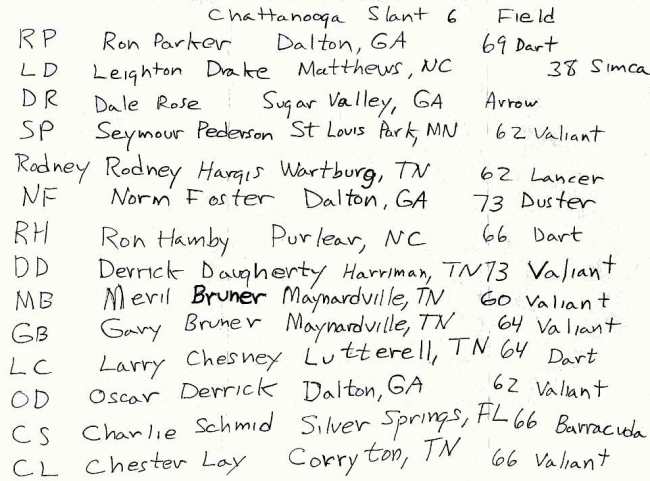 Chattanooga Slant 6 Field
RP Ron Parker Dalton, GA 69 Dart
LD Leighton Drake Matthews, NC 38 Simca
DR Dale Rose Sugar Valley, GA Arrow
SP Seymour Pederson St Louis Park, MN 62 Valiant
Rodney Rodney Hargis Wartburg, TN 62 Lancer
NF Norm Foster Dalton, GA 73 Duster
RH Ron Hamby Purlear, NC 66 Dart
DD Derrick Daugherty Harriman, TN 73 Valiant
MB Meril Bruner Maynardville, TN 60 Valiant
GB Gary Bruner Maynardville, TN 64 Valiant
LC Larry Chesney Lutterell, TN 64 Dart
OD Oscar Derrick Dalton, GA 62 Valiant
CS Charlie Schmid Silver Springs, FL 66 Barracuda
CL Chester Lay Corryton, TN 66 Valiant